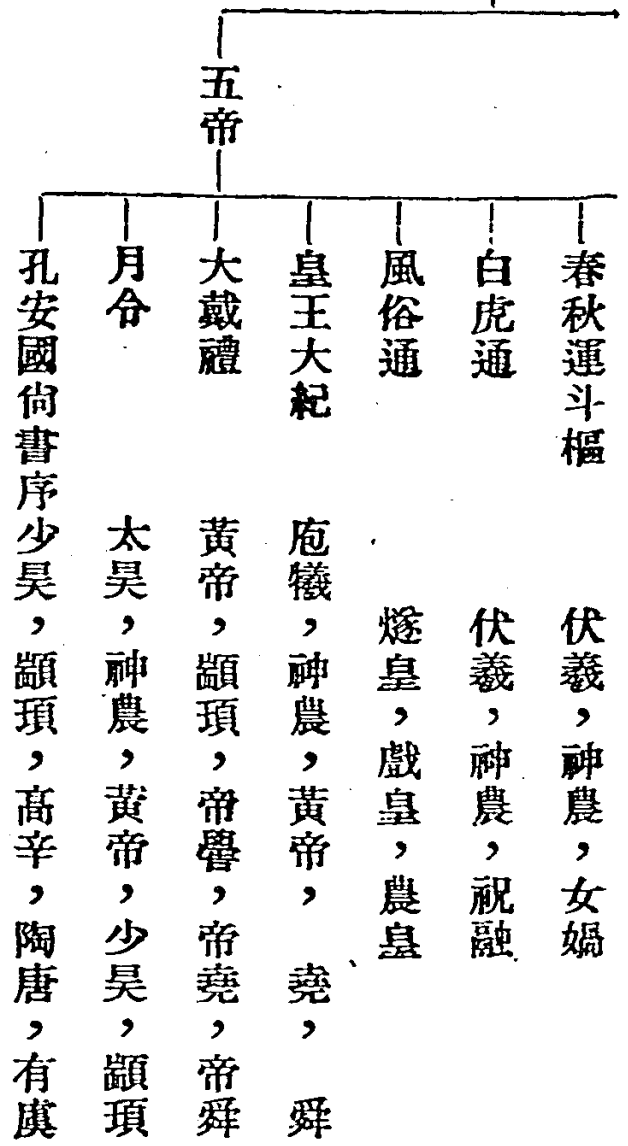 春秋運斗樞　伏羲，神農，女媧
白虎通　伏羲，神農，祝融
風俗通　燧皇，戲皇，農皇
五帝
皇王大紀　庖犧，神農，黃帝，堯，舜
大戴禮　黃帝，顓頊，帝嚳，帝堯，帝舜
月令　太昊，神農，黃帝，少昊，顓頊
孔安國尙書序少昊，顓頊，高辛，陶唐，有虞